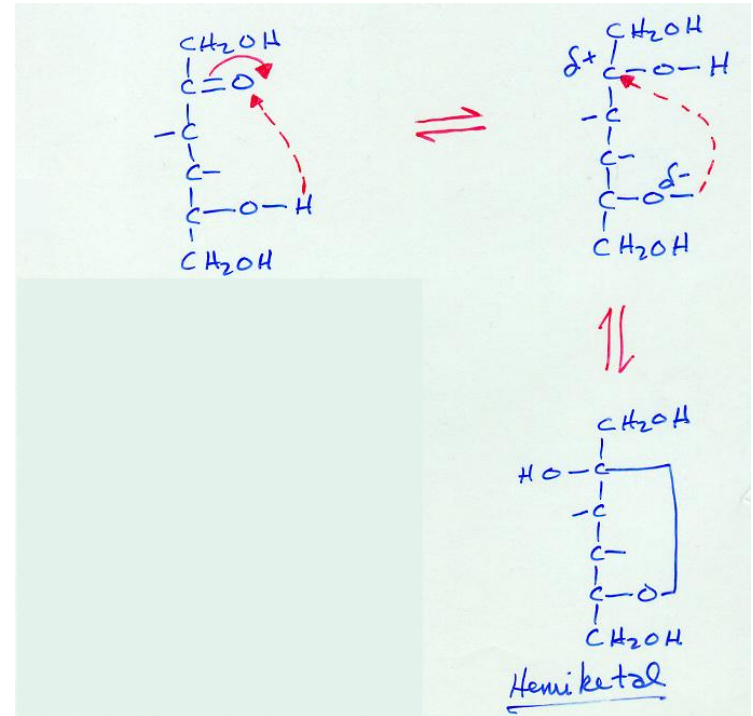 CH₂OH
C=O
-C
C-
C-O-H
CH₂OH
CH₂OH
δ+ C-O-H
-C
C-
δ-
C-O-
CH₂OH
CH₂OH
HO-C
-C
C-
C-O
CH₂OH
Hemiketal